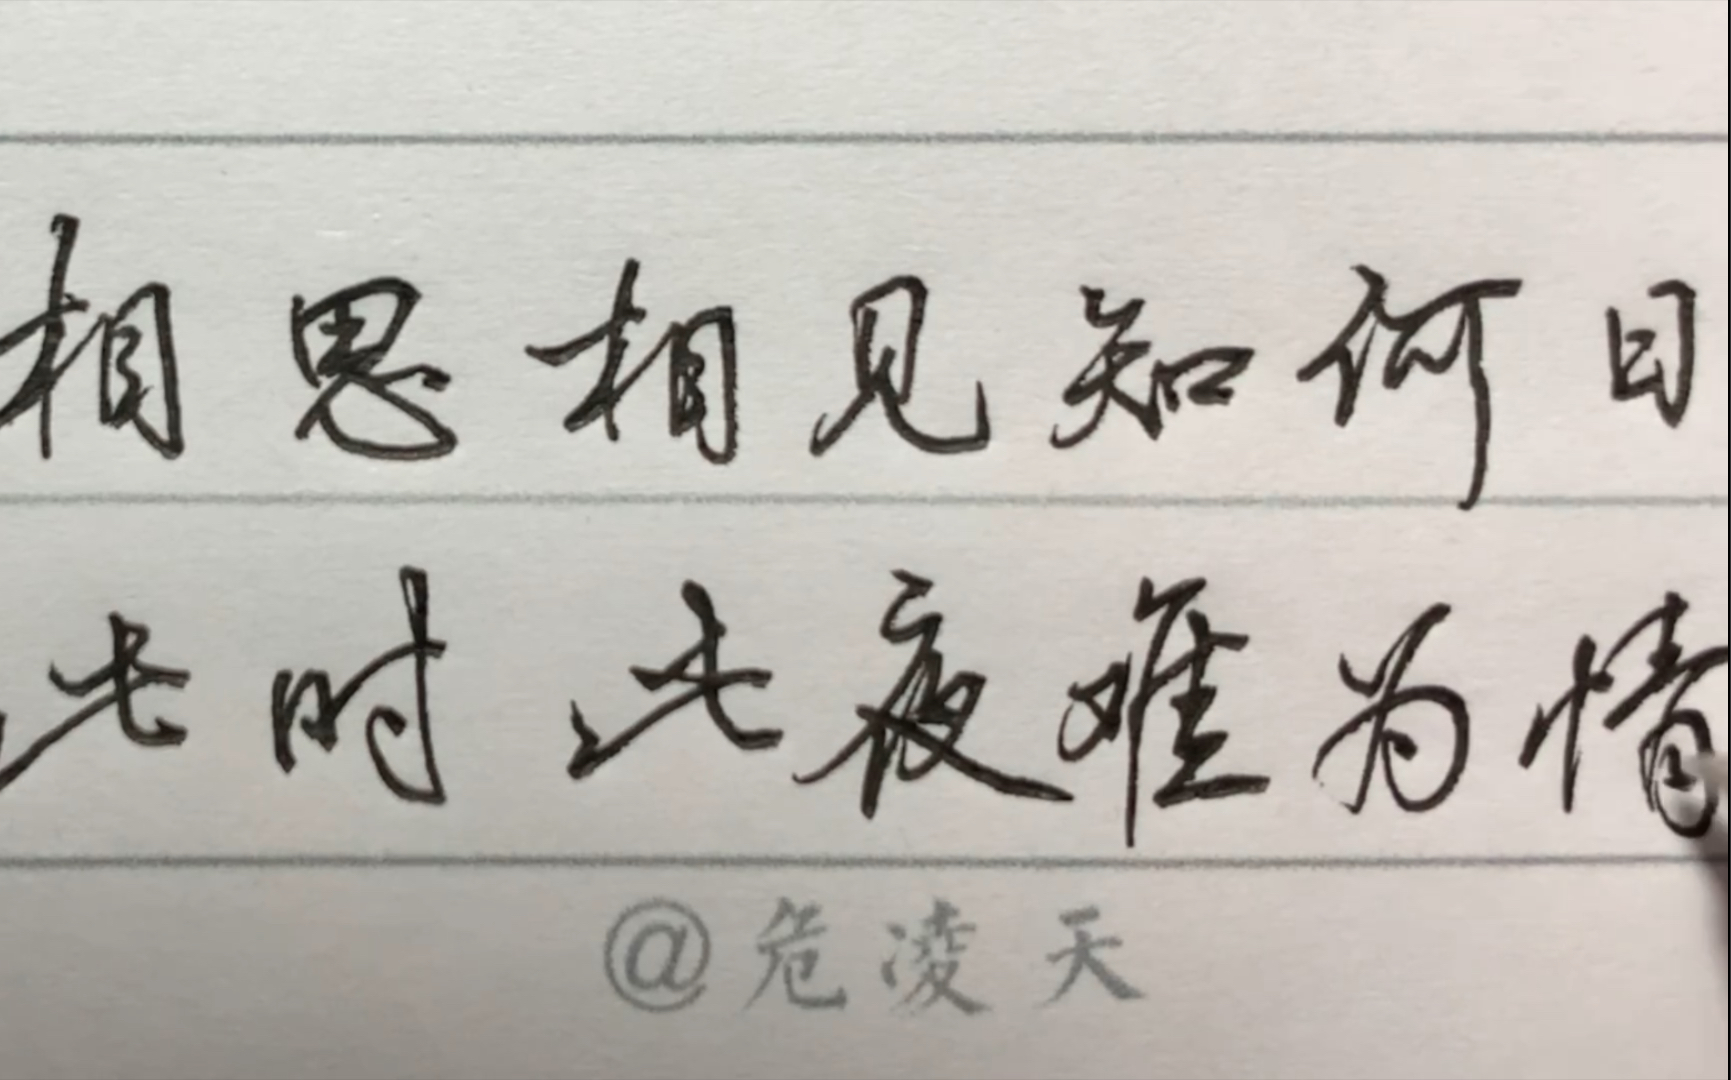 相思相见知何日
此时此夜难为情
@危凌天